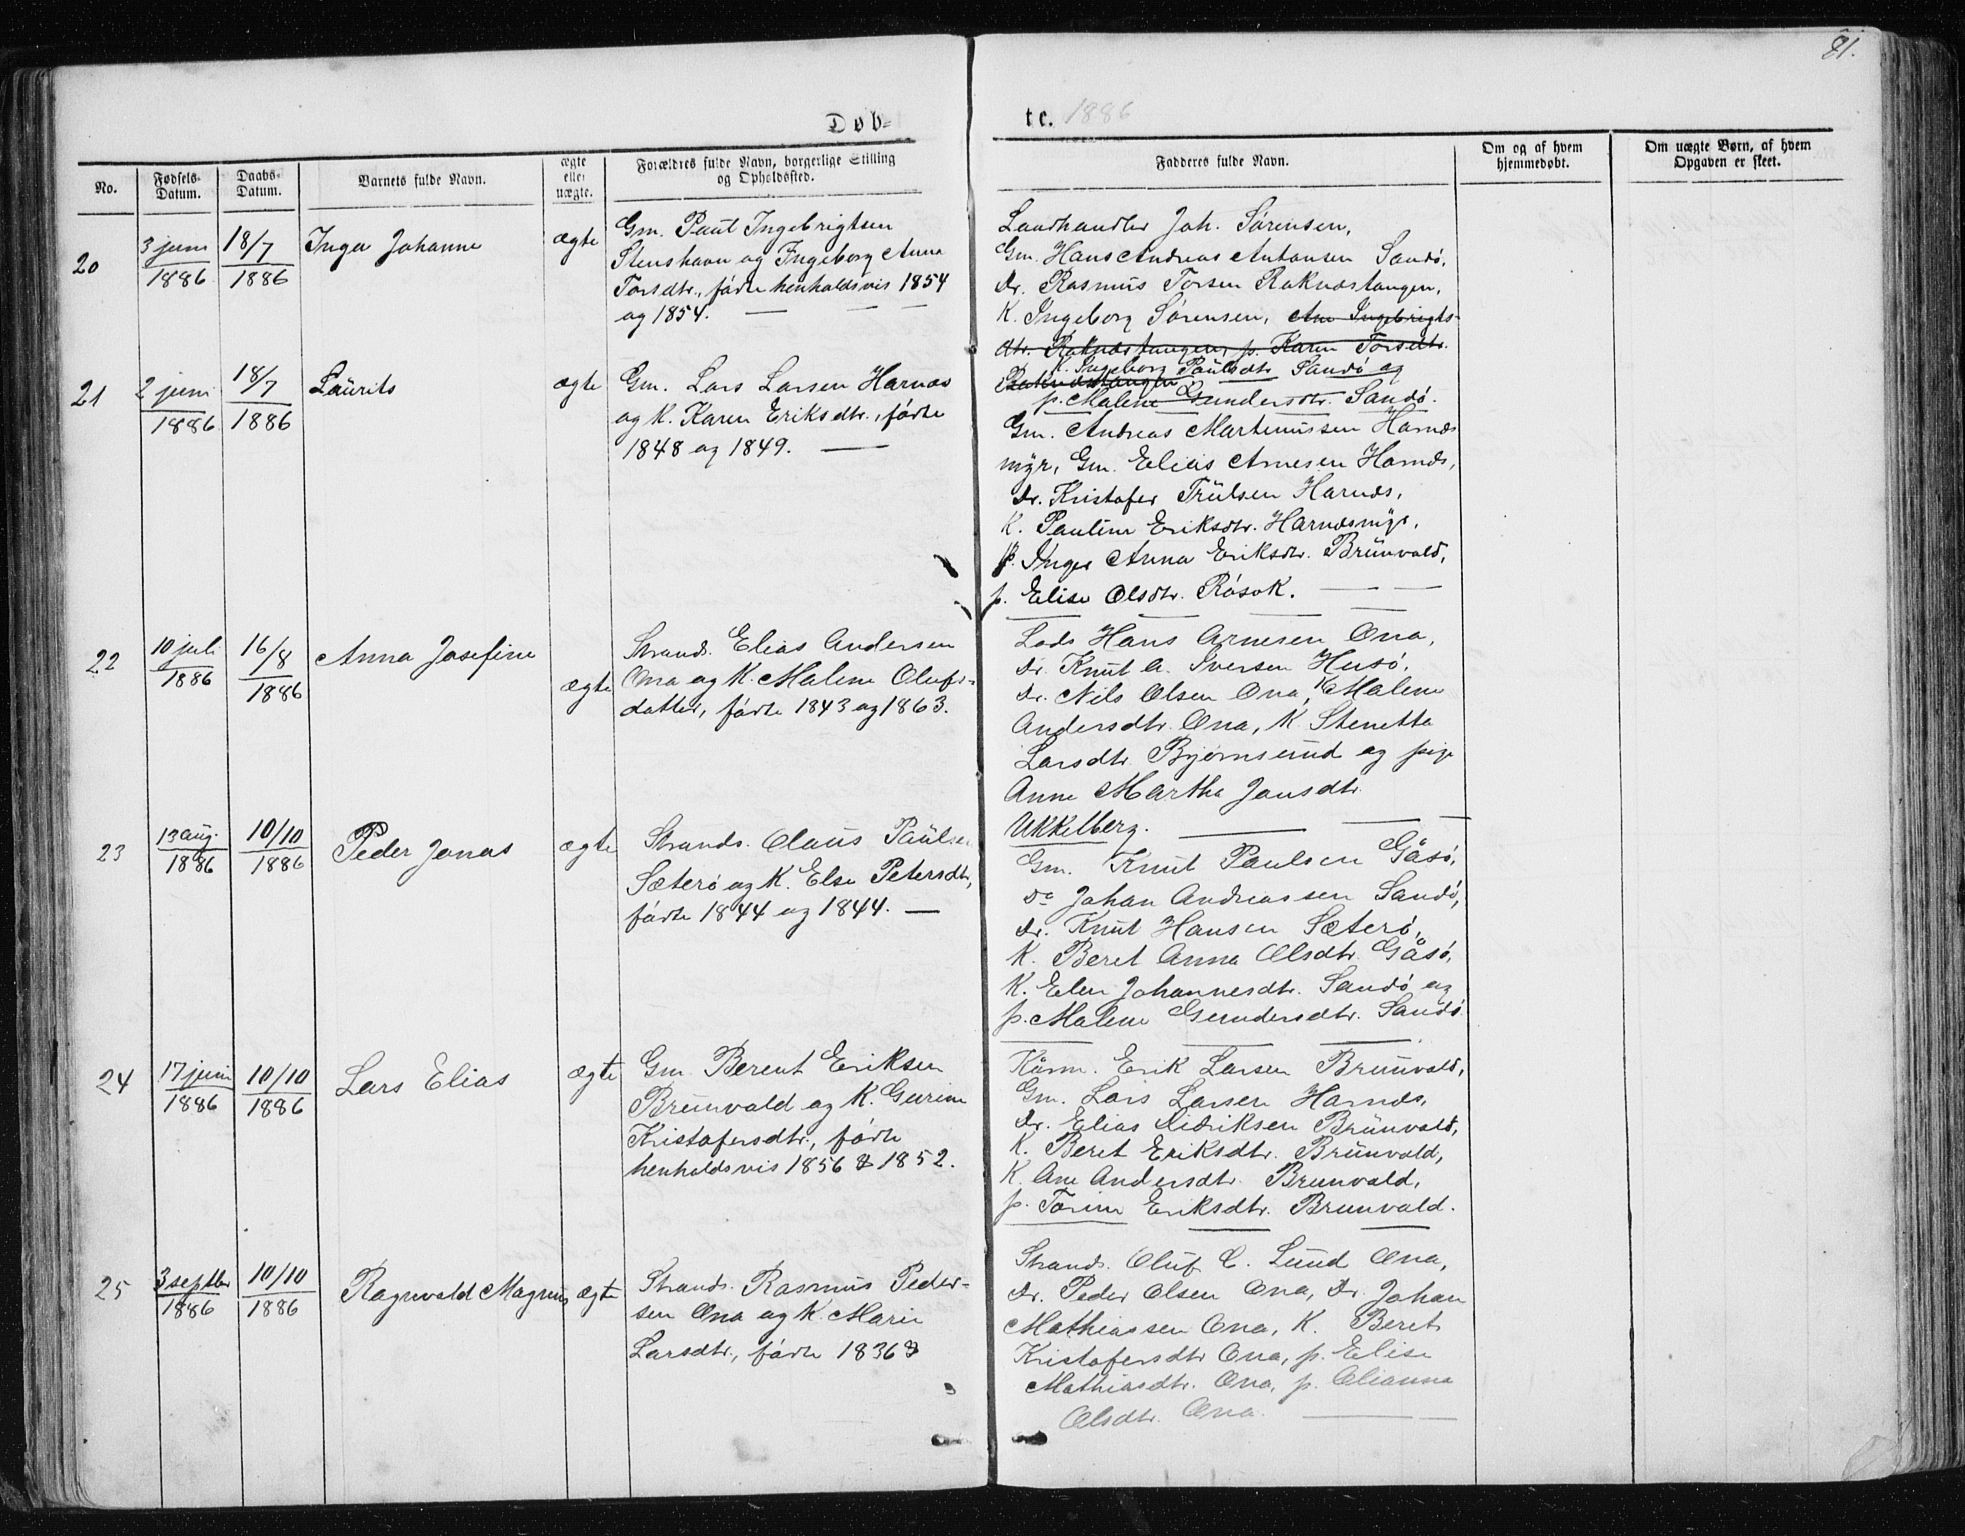 81.
Døb-
te. 1886
No.
Fødsels-
Datum.
Daabs-
Datum.
Barnets fulde Navn.
ægte
eller
uægte.
Forældres fulde Navn, borgerlige Stilling
og Opholdssted.
Fadderes fulde Navn.
Om og af hvem
hjemmedøbt.
Om uægte Børn, af hvem
Opgaven er skeet.
20
3 juni
1886
18/7
1886
Inga Johanne
ægte
Gm. Paul Ingebrigtsen
Stenshavn og Ingeborg Anna
Torsdtr., fødte henholdsvis 1854
og 1854.
Landhandler Joh. Sørensen,
Gm. Hans Andreas Antonsen Sandø,
Dr. Rasmus Torsen Raknæstangen,
K. Ingeborg Sørensen, Ane Ingebrigts-
dtr. Raknæstangen, p. Karen Torsdtr.
Raknæstangen
K. Ingeborg Paulsdtr Sandø og
p. Malene Gundersdtr. Sandø.
21
2 juni
1886
18/7
1886
Laurits
ægte
Gm. Lars Larsen Harnæs
og K. Karen Eriksdtr., fødte
1848 og 1849.
Gm. Andreas Martinussen Harnæs
myr, Gm. Elias Arnesen Harnæs,
Dr. Kristofer Trulsen Harnæs,
K. Pauline Eriksdtr. Harnæsmyr,
p. Inger Anna Eriksdtr. Brunvald,
p. Elise Olsdtr. Røsok.
22
10 juli
1886
16/8
1886
Anna Josefine
ægte
Strands. Elias Andersen
Ona og K. Malene Olufs-
datter, fødte 1843 og 1863.
Lods Hans Arnesen Ona,
Dr. Knut A. Iversen Husø,
Dr. Nils Olsen Ona, K. Malene
Andersdtr. Ona, K Stenetta
Larsdtr. Bjørnsund og pige
Anne Martha Jonsdtr.
Ukkelberg.
23
13 aug.
1886
10/10
1886
Peder Jonas
ægte
Strands. Claus Paulsen
Sæterø og K. Else Petersdtr,
fødte 1844 og 1844.
Gm. Knut Paulsen Gåsø,
Do Johan Andreassen Sandø,
Dr. Knut Hansen Sæterø,
K. Beret Anna Olsdtr. Gåsø,
K. Elen Johannesdtr. Sandø og
p. Malene Gundersdtr. Sandø
24
17 juni
1886
10/10
1886
Lars Elias
ægte
Gm. Berent Eriksen
Brunvald og K. Gurine
Kristofersdtr., fødte
henholdsvis 1856 & 1852.
Kårm. Erik Larsen Brunvald,
Gm. Lars Larsen Harnæs,
Dr. Elias Didriksen Brunvald,
K. Beret Eriksdtr. Brunvald,
K. Ane Andersdtr. Brunvald,
p. Torine Eriksdtr. Brunvald.
25
3 septbr
1886
10/10
1886
Ragnvald Magnus
ægte
Strands. Rasmus Peder-
sen Ona og K. Marie
Larsdtr., fødte 1836 &
Strands. Oluf C. Lund Ona,
Dr. Peder Olsen Ona, Dr. Johan
Mathiassen Ona, K. Beret
Kristofersdtr Ona, p. Elise
Mathiasdtr. Ona, p. Olianna
Olsdtr. Ona.